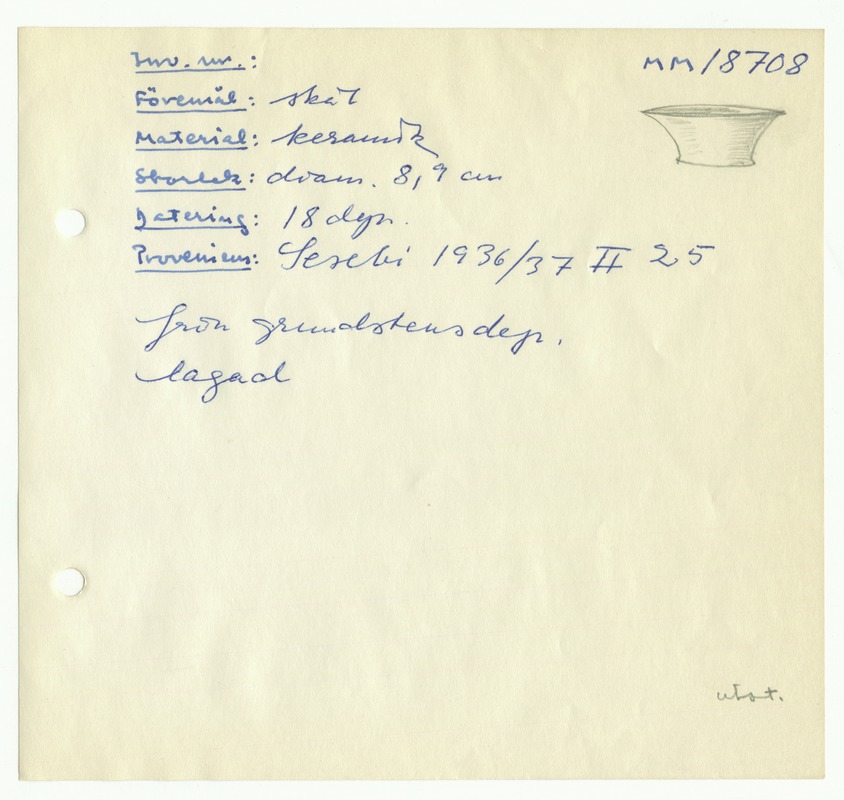 Inv. nr.: MM 18708
Föremål: skål
Material: keramik
Storlek: diam. 8,9 cm
Datering: 18 dyn.
Proveniens: Sesebi 1936/37 II 25
frön grundstensdep.
lagad
utst.